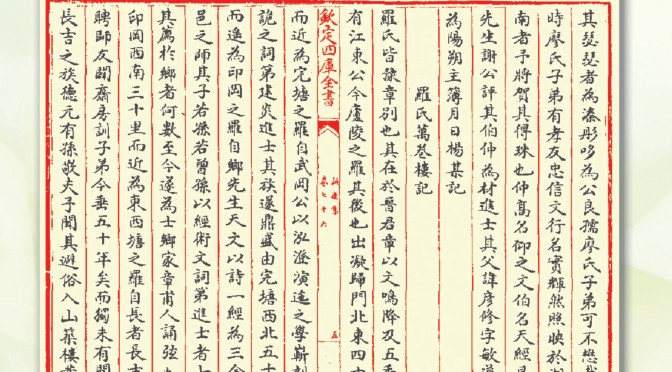 其瑟瑟者為溱彤哆為公良孺廖氏子弟可不懋哉
時廖氏子弟有孝友忠信文行名實輝然照映於
南者予將賀其得珠也仲高名仰之文伯名天經
先生謝公評其伯仲為材進士其父諱彦修字敏道
為陽朔主簿月日楊某記
羅氏萬卷樓記
羅氏皆豫章別也其在於晉君章以文鳴降及五季
有江東公今廬陵之羅其後也出凝歸門北東四十
欽定四庫全書
卷七十六
五
而近為完塘之羅自武岡公以泓澄演迤之學嶄刻
詭之詞第建炎進士其族遂鼎盛由完塘西北五十
而遥為印岡之羅自鄉先生天文以詩一經為三舍
邑之師其子若孫若曾孫以經術文詞第進士者
其薦於鄉者何數至今遂為士鄉家章甫人誦弦
印岡西南三十里而近為東西塘之羅自長者長吉
聘師友闢齋房訓子弟今垂五十年矣而獨未有聞
長吉之族德元有孫敬夫子聞其避俗入山築樓